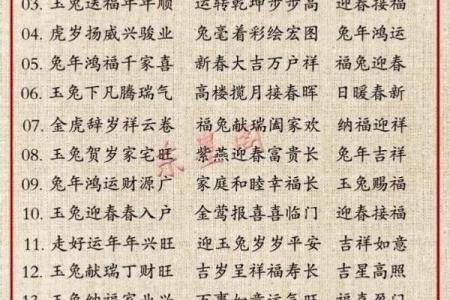 03. 玉兔送福年年顺 运转乾坤步步高 迎春接福
04. 虎岁扬威兴骏业 兔毫着彩绘宏图 兔年鸿运
05. 兔年鸿福千家喜 新春大吉万户祥 福兔迎春
06. 玉兔下凡腾瑞气 高楼揽月接春晖 日暖春新
07. 金虎辞岁祥云卷 福兔献瑞阖家欢 纳福迎祥
08. 玉兔贺岁家宅旺 紫燕迎春富贵长 兔年吉祥
09. 兔年鸿运财源广 家庭和睦幸福长 玉兔赐福
10. 玉兔迎春春入户 金莺报喜喜临门 迎春接福
11. 走好运年年兴旺 迎玉兔岁岁平安 吉祥如意
12. 玉兔献瑞丁财旺 吉岁呈祥福寿长 吉星高照
13. 玉兔纳福家业兴 万事如意运气旺 福喜盈门